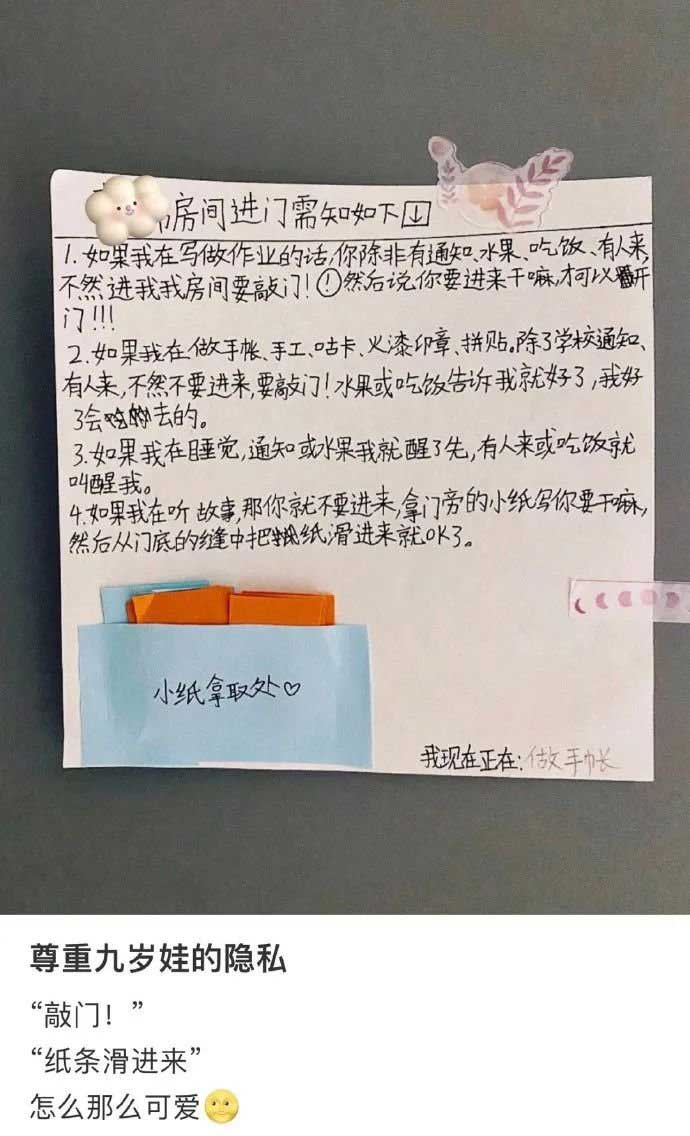 房间进门需知如下↓
1.如果我在写做作业的话,你除非有通知、水果、吃饭、有人来,
不然进我我房间要敲门!①然后说你要进来干嘛,才可以开
门!!!
2.如果我在做手帐、手工、咕卡、火漆印章、拼贴。除了学校通知、
有人来,不然不要进来,要敲门!水果或吃饭告诉我就好了,我好
了会去的。
3.如果我在睡觉,通知或水果我就醒了先,有人来或吃饭就
叫醒我。
4.如果我在听故事,那你就不要进来,拿门旁的小纸写你要干嘛,
然后从门底的缝中把纸滑进来就OK了。
小纸拿取处♡
我现在正在:做手帐
尊重九岁娃的隐私
“敲门!”
“纸条滑进来”
怎么那么可爱🌝